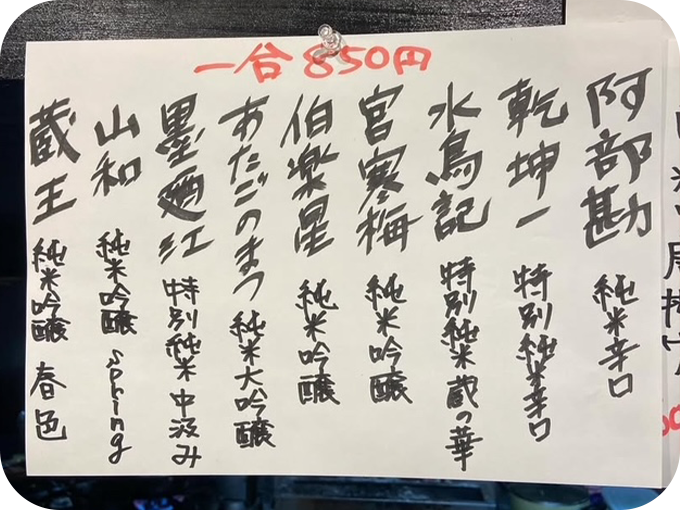 一合 850円
阿部勘 純米辛口
乾坤一 特別純米辛口
水鳥記 特別純米 蔵の華
宮寒梅 純米吟醸
伯楽星 純米吟醸
あたごのまつ 純米大吟醸
墨廼江 特別純米 中汲み
山和 純米吟醸 spring
蔵王 純米吟醸 春色